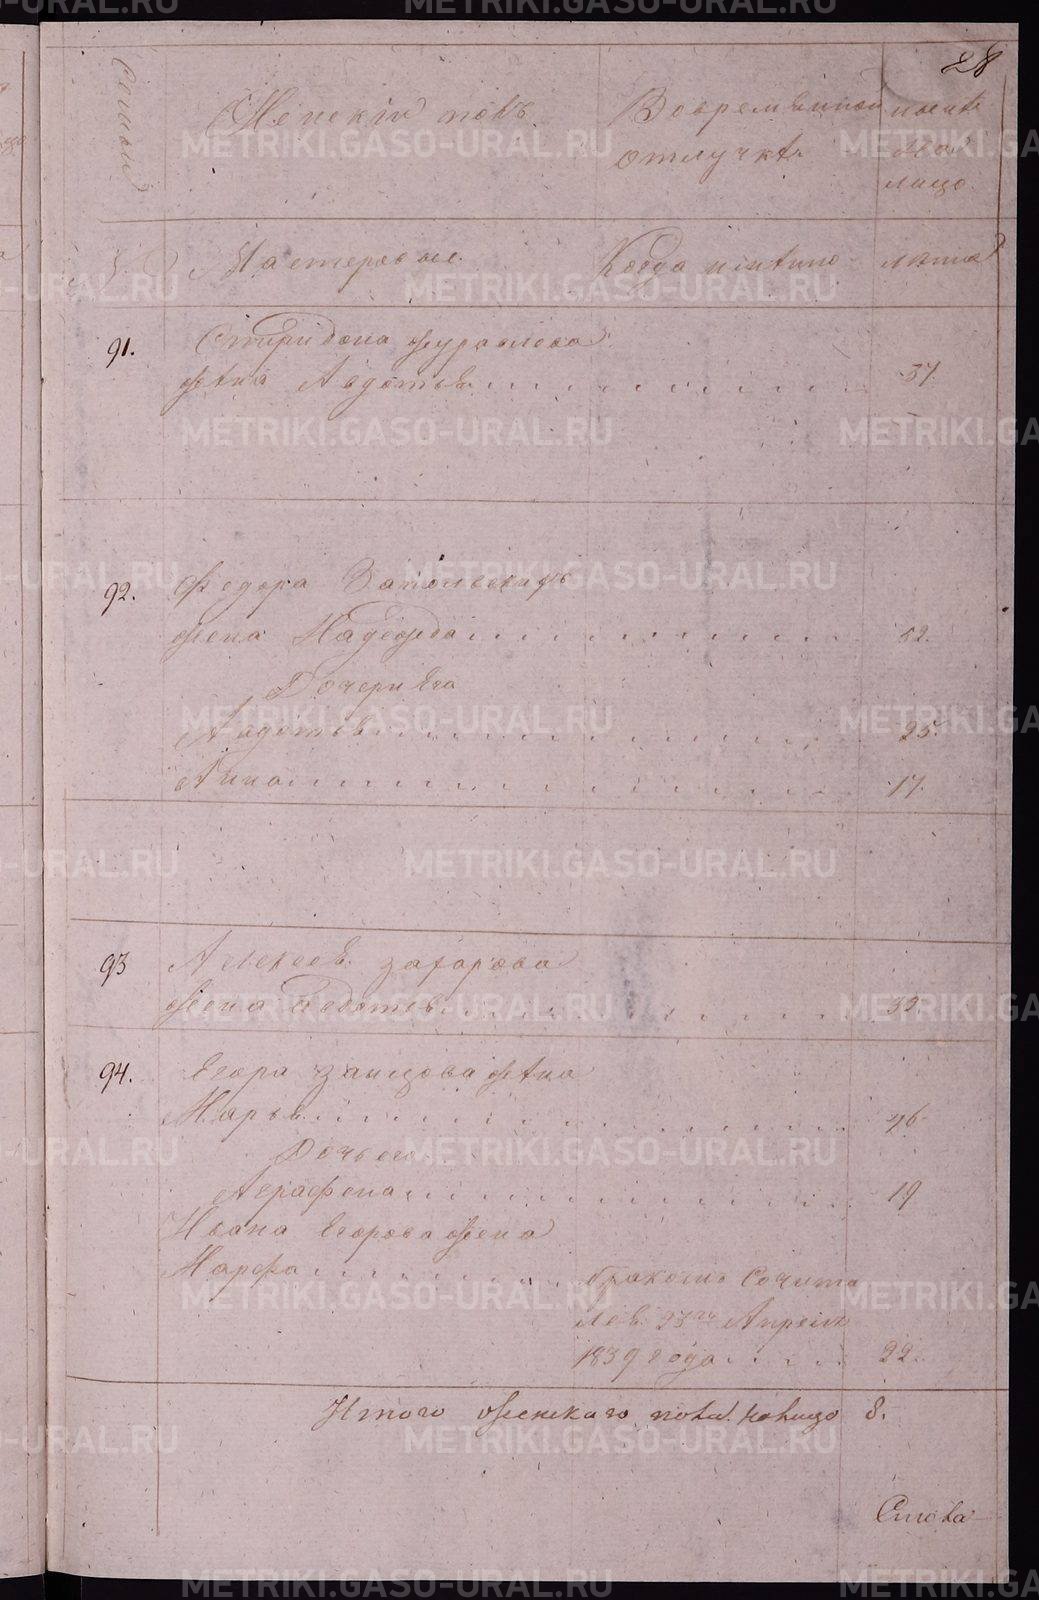 28
Семьи
Женскій полъ.
Во временной
отлучкѣ
ныне
на
лицо.
№
Мастеровые.
Когда именно
лѣта
91.
Спиридона Журавлева
жена Авдотья
37.
92.
Федора Запольскихъ
жена Надежда
52.
Дочери Его
Авдотья
25.
Анна
17.
93
Алексея Захарова
жена Авдотья
39.
94.
Егора Заицова жена
Марья
46
Дочь его
Аграфена
19
Ивана Егорова жена
Марфа
браком Сочита
лся 23го Апреля
1839 года
22.
Итого женскаго пола налицо 8.
METRIKI.GASO-URAL.RU